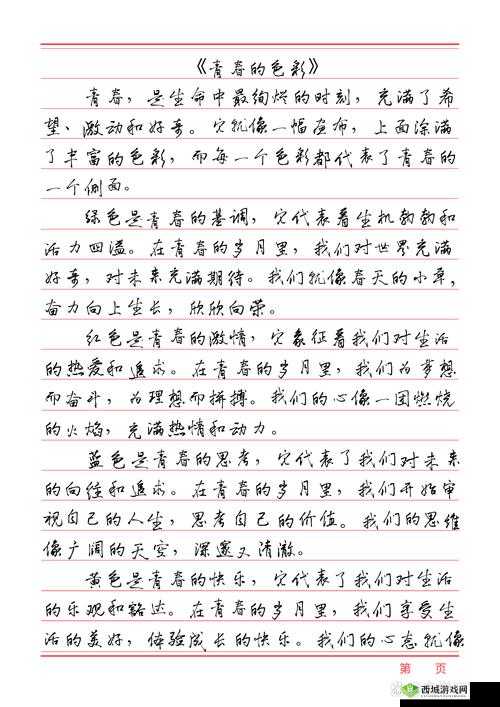 《青春的色彩》
青春，是生命中最绚烂的时刻，充满了希
望、激动和好奇。它就像一幅画布，上面涂满
了丰富的色彩，而每一个色彩都代表了青春的
一个侧面。
绿色是青春的基调，它代表着生机勃勃和
活力四溢。在青春的岁月里，我们对世界充满
好奇，对未来充满期待。我们就像春天的小草，
奋力向上生长，欣欣向荣。
红色是青春的激情，它象征着我们对生活
的热爱和追求。在青春的岁月里，我们为梦想
而奋斗，为理想而拼搏。我们的心像一团燃烧
的火焰，充满热情和动力。
蓝色是青春的思考，它代表了我们对未来
的向往和追求。在青春的岁月里，我们开始审
视自己的人生，思考自己的价值。我们的思维
像广阔的天空，深邃又清澈。
黄色是青春的快乐，它代表了我们对生活
的乐观和豁达。在青春的岁月里，我们享受生
活的美好，体验成长的快乐。我们的心态就像
第 页
西城游戏网